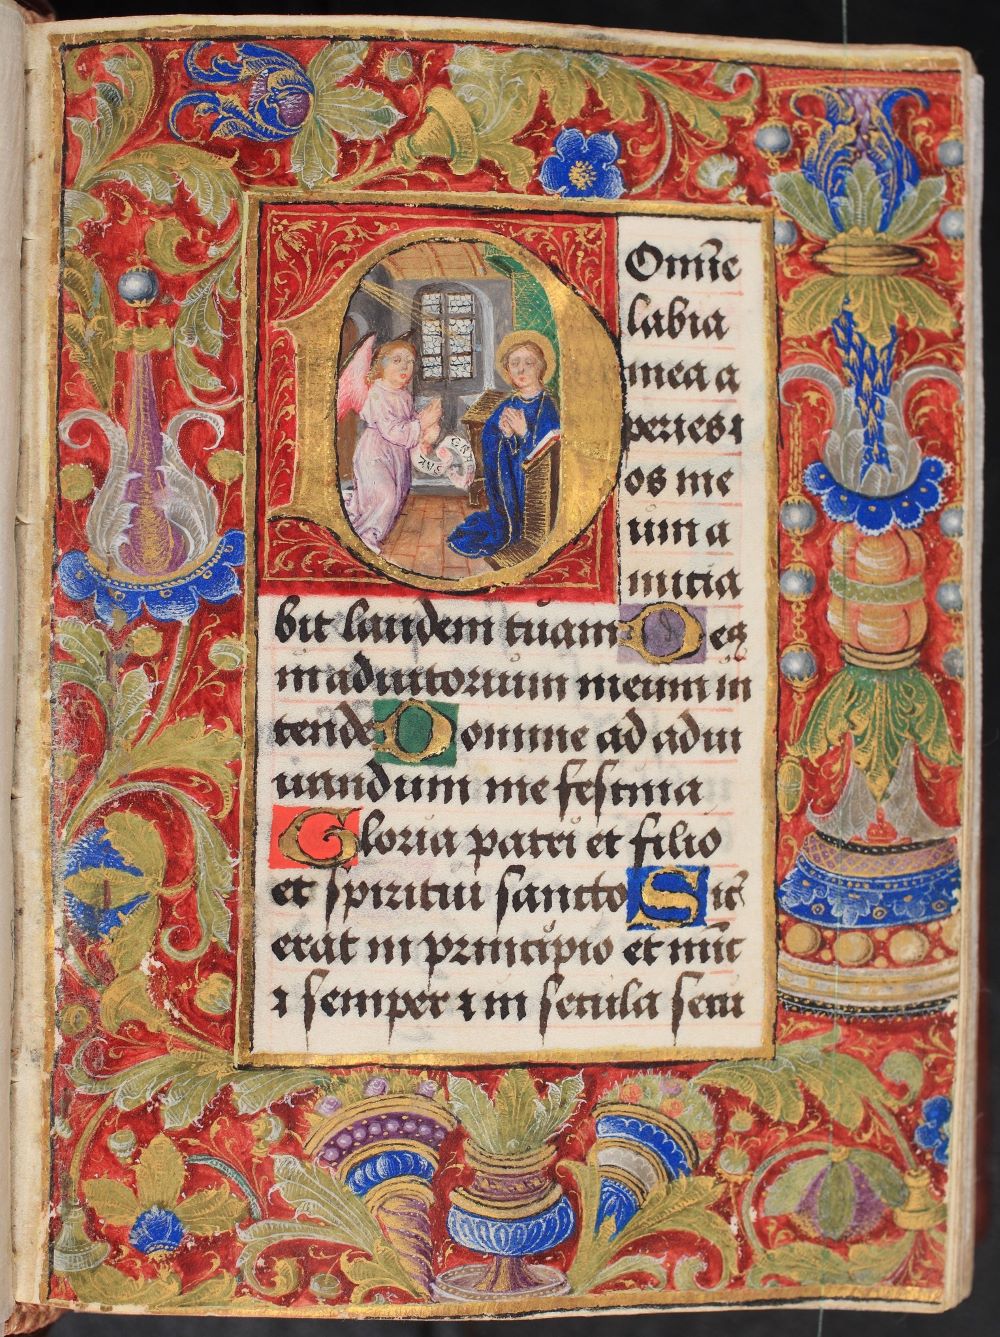 Domīe
labia
mea a
peries ⁊
os me
um a
nūcia
bit laudem tuam Deꝰ
in adiutorium meum in
tende Domine ad adiu
uandum me festina
Gloria patri et filio
et spiritui sancto Sic̄
erat in principio et nūc
⁊ semper ⁊ in secula secu